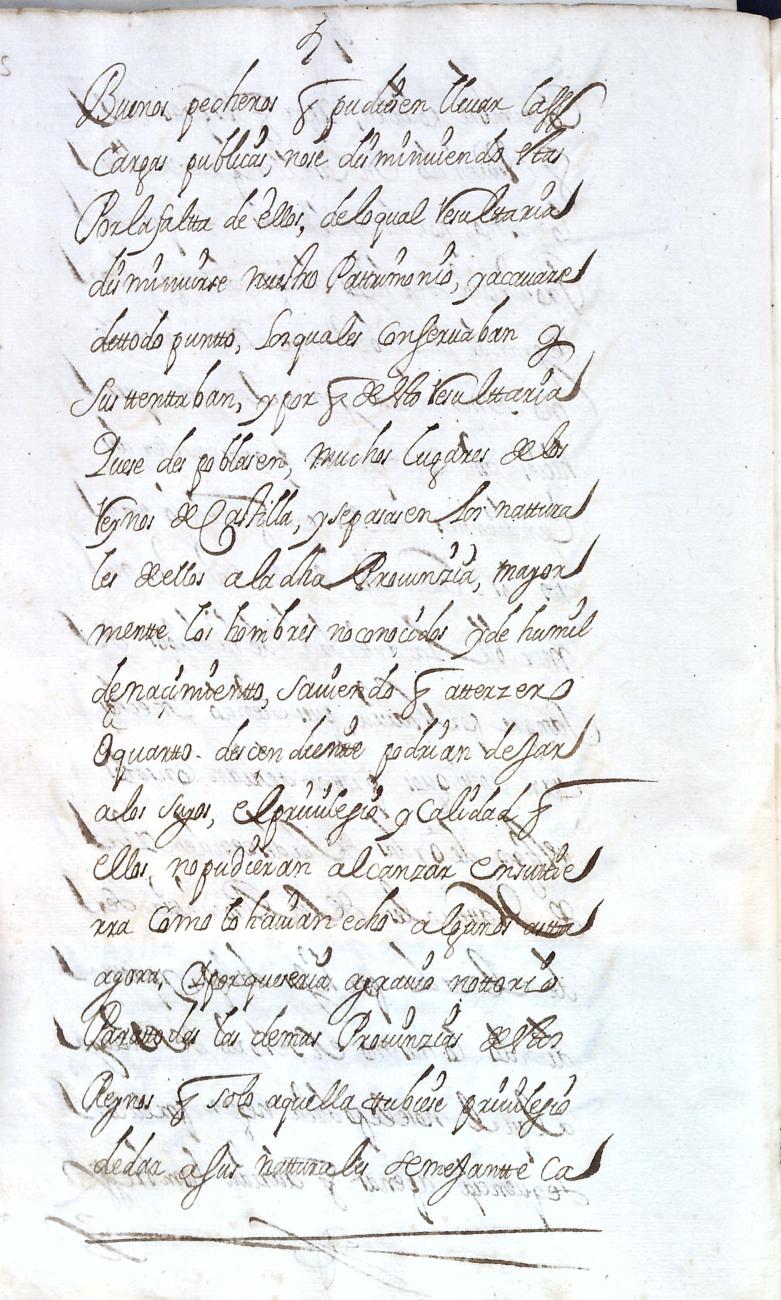 Buenos pecheros q pudiesen lleuar lass
Cargas publicas, nose disminuiendo estas
Por la faltta de ellos, deloqual Resulttaria
disminuirse nuestro Pattrimonio, y acauarse
dettodo puntto, los quales Conseruaban y
Susttenttaban, y por q de esto Resulttaria
Quese des poblasen, muchos lugares de los
Reynos de Castilla, y sepasasen los nattura
les de ellos a la dha Prouinzia, mayor
mentte los hombres no conocidos y de humil
de nacimientto, sauiendo q atterzero
O quartto descendientte podrian dejar
a los suyos, el priuilegio y calidad q
ellos, no pudieran alcanzar en suttie
rra como lo hauian echo algunos astta
agora, Y porque seria agrauio nottorio
Para ttodas las demas Prouinzias de esttos
Reynos q solo aquella ttubiese priuilegio
de dar a sus natturales semejantte Ca